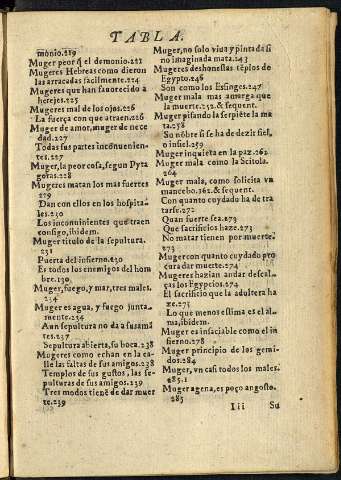 TABLA.
monio.219
Muger peor q̃ el demonio.221
Mugeres Hebreas como dieron
las arracadas facilmente.224
Mugeres que han fauorecido a
herejes.225
Mugeres mal de los ojos.226
La fuerça con que atraen.226
Muger de amor, muger de nece
dad.227
Todas sus partes inconuenien-
tes.227
Muger, la peor cosa, segun Pyta
goras.228
Mugeres matan los mas fuertes
229
Dan con ellos en los hospita-
les.230
Los inconuinientes que traen
consigo, ibidem.
Muger titulo de la sepultura.
231
Puerta del infierno.230
Es todos los enemigos del hom
bre.230
Muger, fuego, y mar, tres males.
234
Muger es agua, y fuego junta-
mente.236
Aun sepultura no da a su ama
tes.237
Sepultura abierta, su boca.238
Mugeres como echan en la ca-
lle las faltas de sus amigos.238
Templos de sus gustos, las se-
pulturas de sus amigos.239
Tres modos tienē de dar muer
te.239
Muger, no solo viua y pintada si
no imaginada mata.243
Mugeres deshonestas tēplos de
Egypto.246
Son como los Esfinges.247
Muger mala mas amarga que
la muerte.252.& sequent.
Muger pisando la serpiēte la ma
ta.258
Su nōbre si se ha de dezir fiel,
o infiel.259
Muger inquieta en la paz.262
Muger mala como la Scitola.
264
Muger mala, como solicita vn
mancebo.362.& sequent.
Con quanto cuydado ha de tra
tarse.272
Quan fuerte sea.273
Que sacrificios haze.273
No matar tienen por muerte.
273
Muger con quanto cuydado pro
cura dar muerte.274
Mugeres hazian andar descal-
ças los Egypcios.274
El sacrificio que la adultera ha
ze.275
Lo que menos estima es el al-
ma, ibidem.
Muger es insaciable como el in
fierno.278
Muger principio de los gemi-
dos.284
Muger, vn casi todos los males.
285.1
Muger agena, es poço angosto.
285
Iii Su